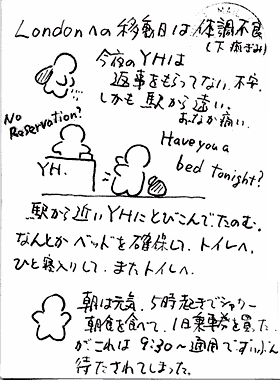 Londonへの移動日は体調不良
(下痢ぎみ)
今夜のYHは
返事をもらってない。不安。
しかも駅から遠い。
おなか痛い。
No
Reservation?
Have you a
bed tonight?
YH.
駅から近いYHにとびこんでたのむ。
なんとかベッドを確保して、トイレへ。
ひと寝入りして、またトイレへ。
朝は元気。5時起きでシャワー
朝食を食べて、1日乗車券を買った
がこれは9:30〜通用でずいぶん
待たされてしまった。